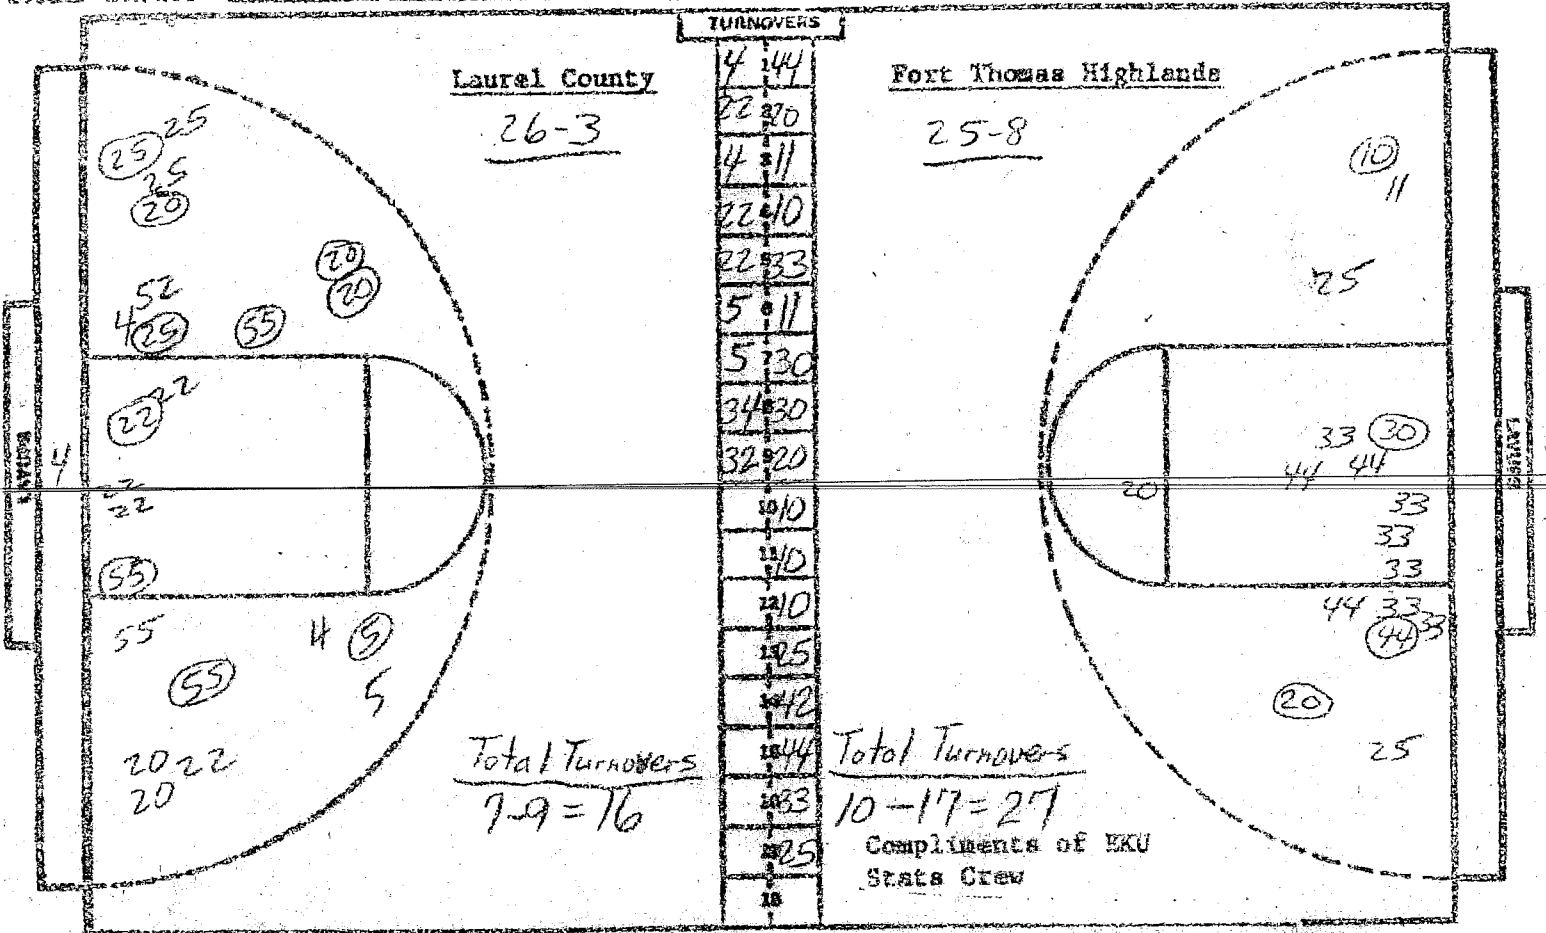 TURNOVERS
Laurel County
26-3
Fort Thomas Highlands
25-8
4 1 44
22 2 20
4 3 11
22 4 10
22 5 33
5 6 11
5 7 30
34 8 30
32 9 20
10 10
11 10
12 10
13 25
14 42
15 44
16 33
17 25
18
25
25
25
20
20
20
52
4 25 55
22 22
4
22
22
55
55 4 5
55 5
20 22
20
10
11
25
33 30
44 44
20
33
33
33
44 33
44 33
20
25
Total Turnovers
7-9=16
Total Turnovers
10-17=27
Compliments of EKU
Stats Crew